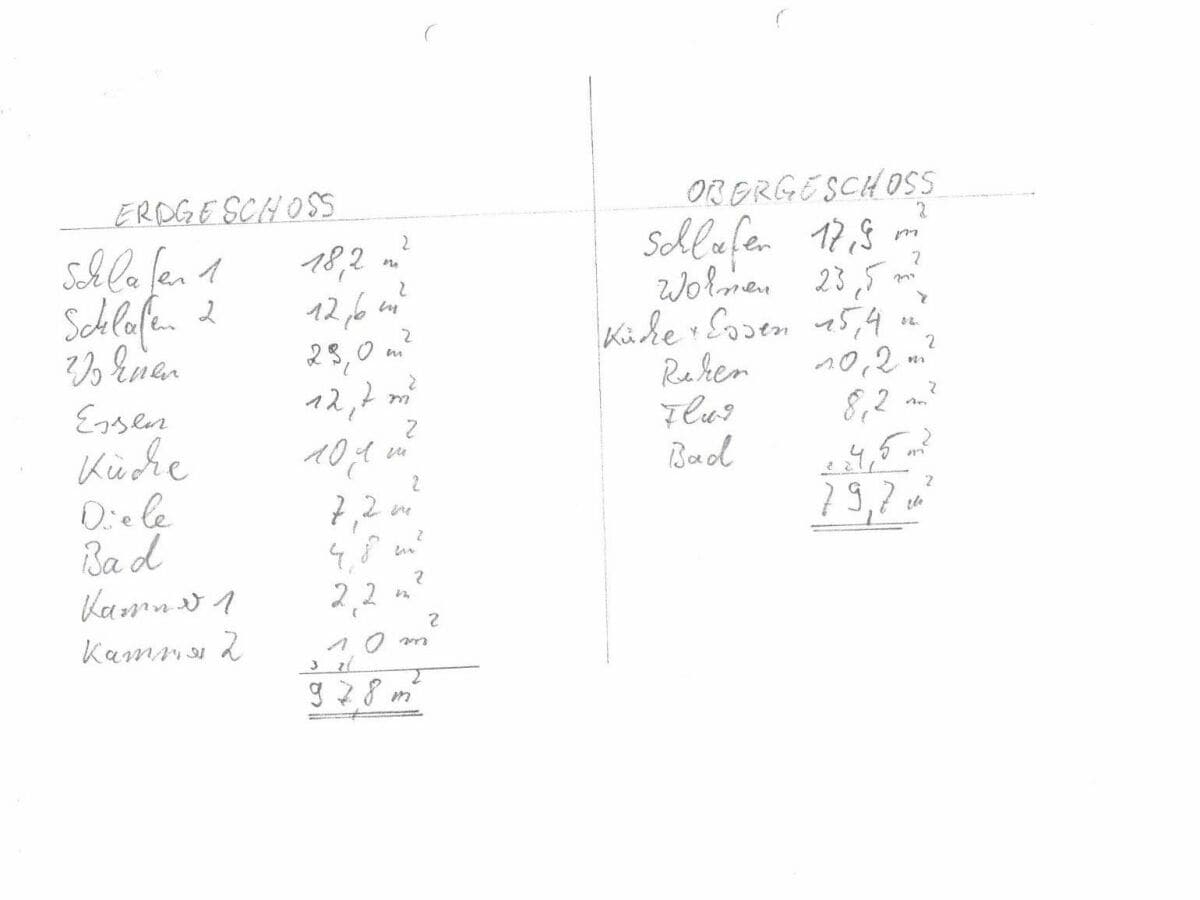 ERDGESCHOSS
Schlafen 1 18,2 m²
Schlafen 2 12,6 m²
Wohnen 29,0 m²
Essen 12,7 m²
Küche 10,1 m²
Diele 7,2 m²
Bad 4,8 m²
Kammer 1 2,2 m²
Kammer 2 1,0 m²
3 2
97,8 m²
OBERGESCHOSS
Schlafen 17,9 m²
Wohnen 23,5 m²
Küche + Essen 15,4 m²
Ruhen 10,2 m²
Flur 8,2 m²
Bad 4,5 m²
2 2
79,7 m²